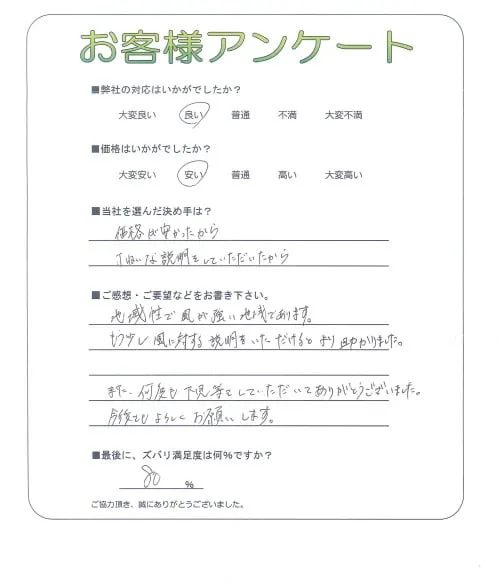 お客様アンケート
■弊社の対応はいかがでしたか?
大変良い 良い 普通 不満 大変不満
■価格はいかがでしたか?
大変安い 安い 普通 高い 大変高い
■当社を選んだ決め手は?
価格が安かったから
丁ねいな説明をしていただいたから
■ご感想・ご要望などをお書き下さい。
地域性で風が強い地域であります。
もう少し風に対する説明をいただけるとより助かりました。
また、何度も下見等でしていただいてありがとうございました。
今後ともよろしくお願いします。
■最後に、ズバリ満足度は何%ですか?
80 %
ご協力頂き、誠にありがとうございました。